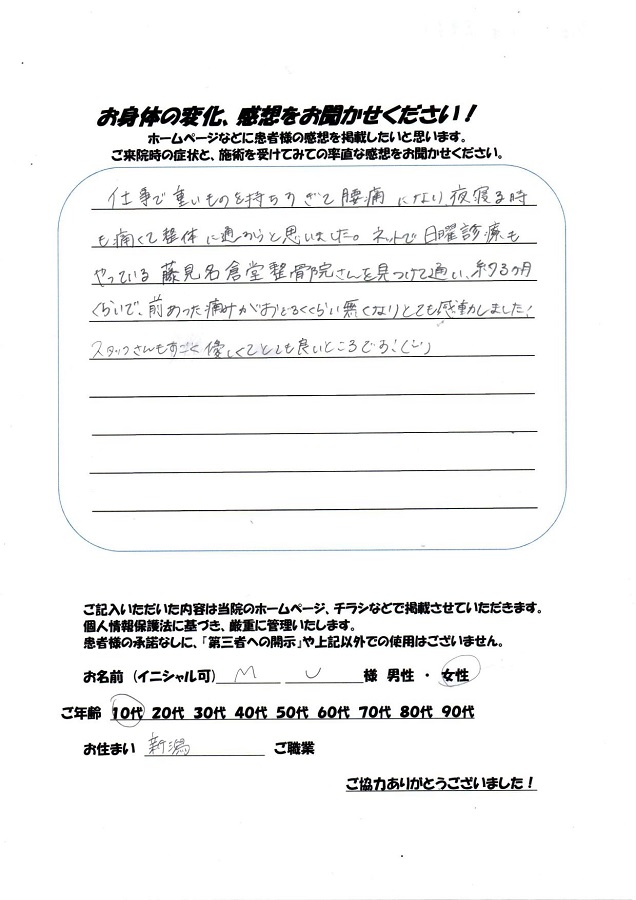 お身体の変化、感想をお聞かせください！
ホームページなどに患者様の感想を掲載したいと思います。
ご来院時の症状と、施術を受けてみての率直な感想をお聞かせください。
仕事で重いものを持ちすぎて腰痛になり夜寝る時
も痛くて整体に通おうと思いました。ネットで日曜診療も
やっている藤見名倉堂整骨院さんを見つけて通い、約3ヶ月
くらいで、前あった痛みがおどろくくらい無くなりとても感動しました!
スタッフさんもすごく優しくてとても良いところです!
ご記入いただいた内容は当院のホームページ、チラシなどで掲載させていただきます。
個人情報保護法に基づき、厳重に管理いたします。
患者様の承諾なしに、「第三者への開示」や上記以外での使用はございません。
お名前（イニシャル可） M U 様 男性 ・ 女性
ご年齢 10代 20代 30代 40代 50代 60代 70代 80代 90代
お住まい 新潟 ご職業
ご協力ありがとうございました！